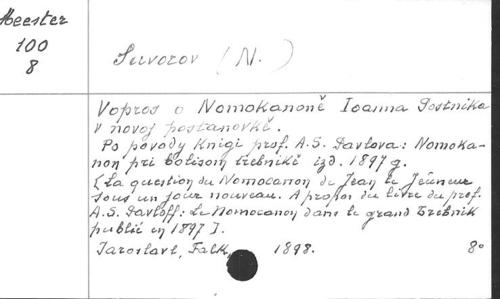 Meester
100
8
Suvorov (N.)
Vopros o Nomokanoně Ioanna Postnika
v novoj postanovkě.
Po povodu Knigi prof. A.S. Pavlova: Nomoka-
non pri bolšom trebnikě izd. 1897 g.
[La question du Nomocanon de Jean le Jeûneur
sous un jour nouveau. A propos du livre du prof.
A.S. Pavloff: Le Nomocanon dans le grand Trebnik
publié en 1897].
Jaroslavl, Falk, 1898. 8°